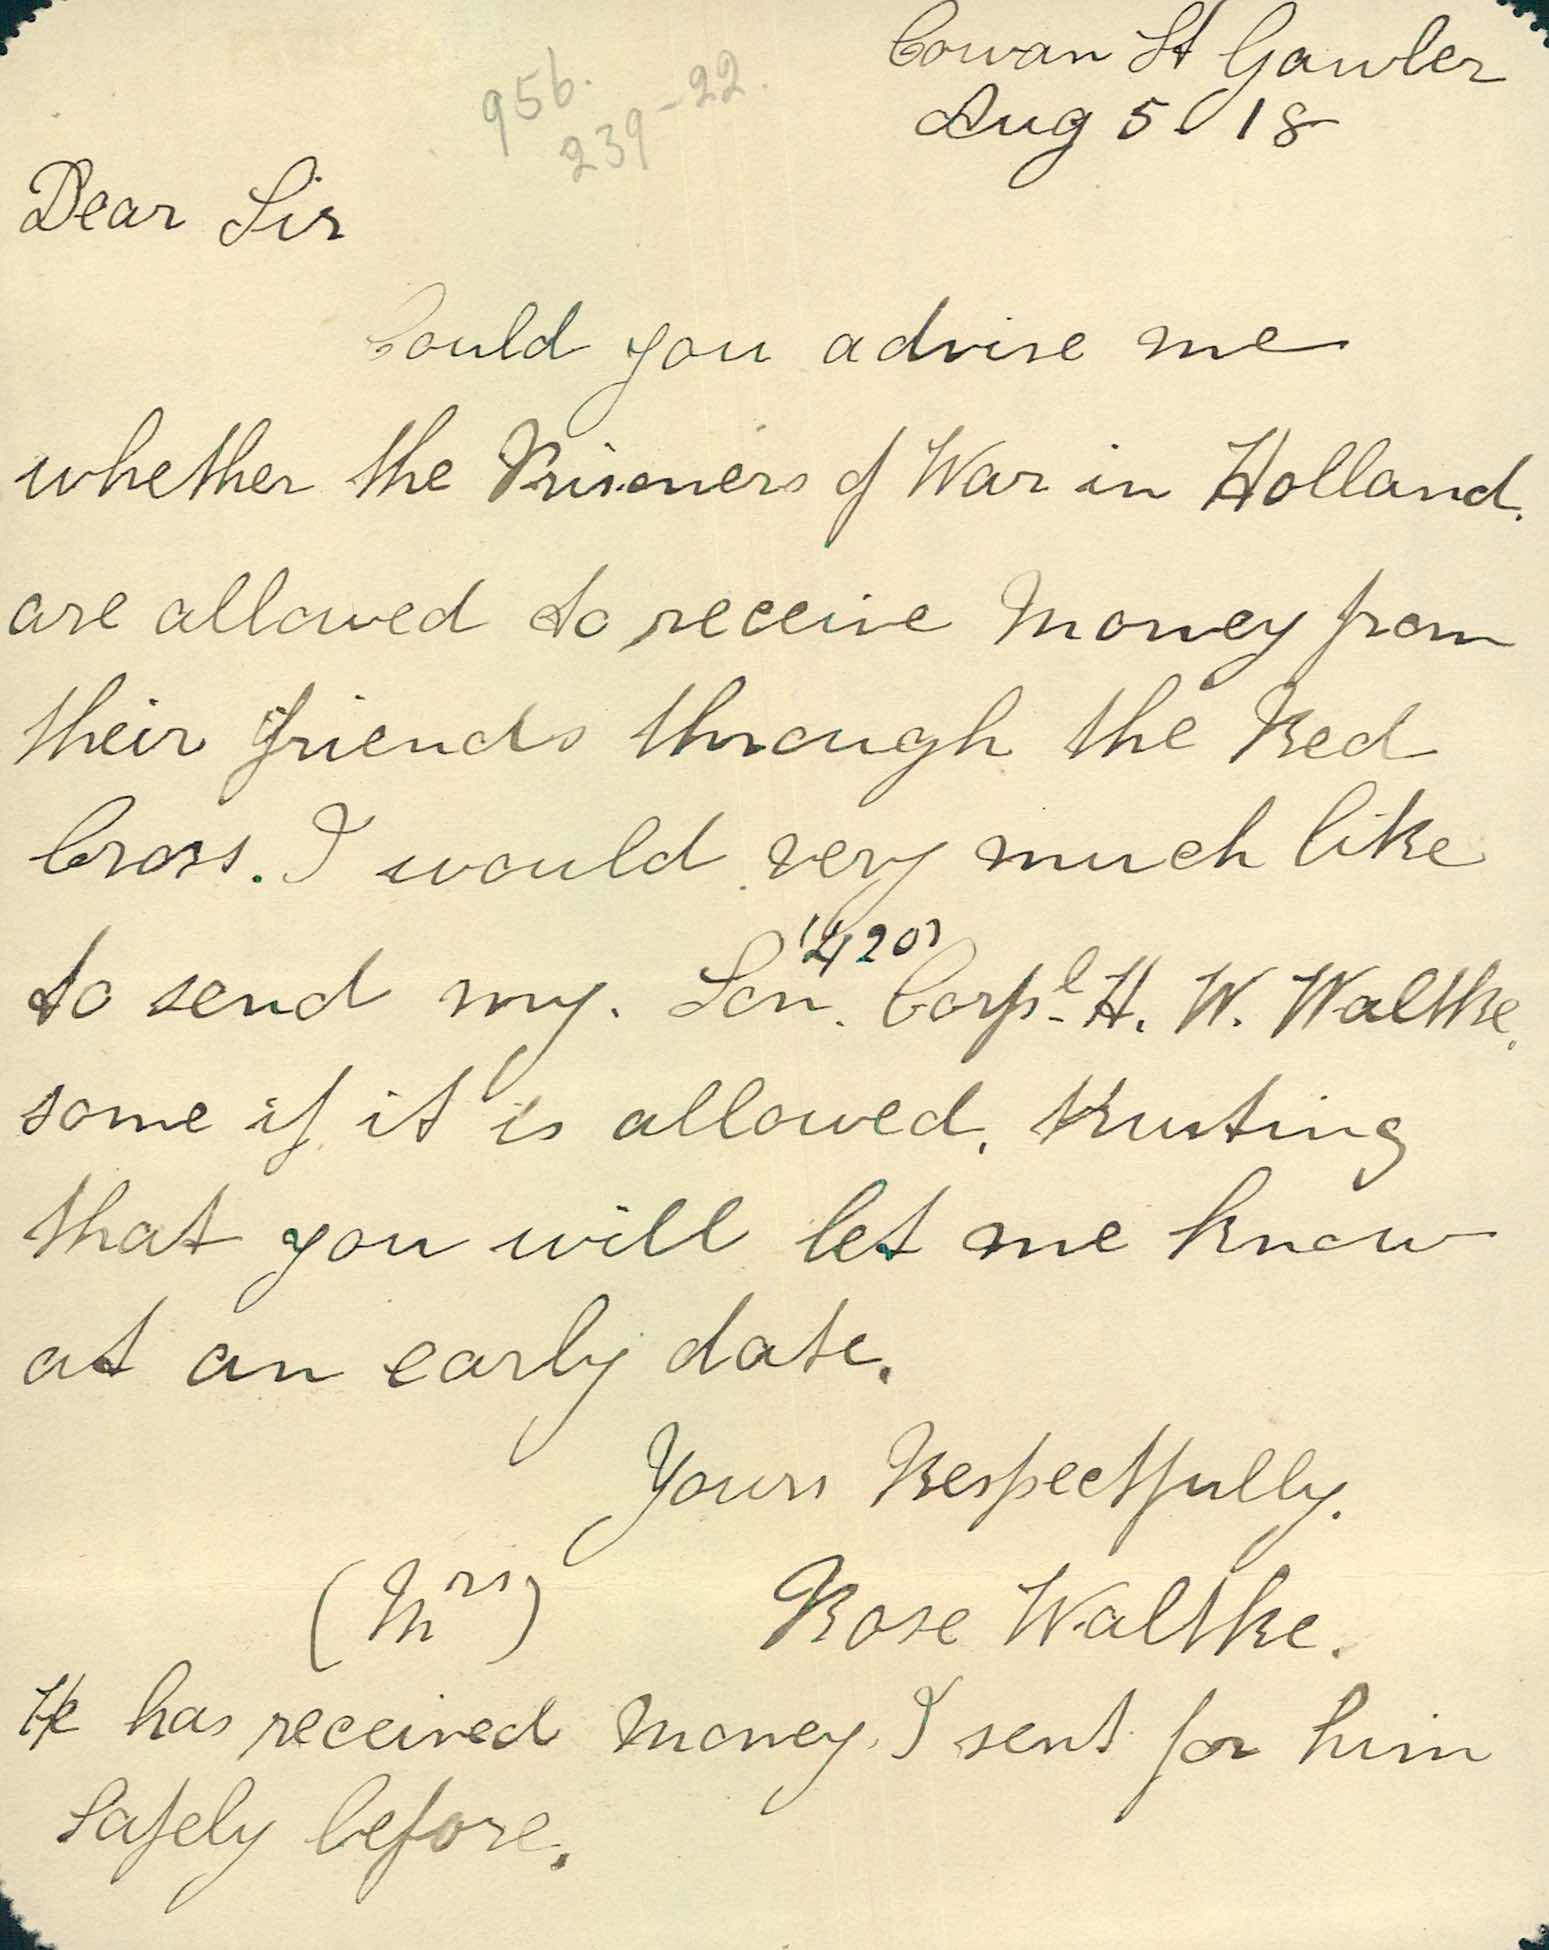 Cowan St Gawler
956.
239-22.
Aug 5 / 18
Dear Sir
Could you advise me
whether the Prisoners of War in Holland.
are allowed to receive Money from
their friends through the Red
Cross. I would very much like
(420)
to send my. Son. Corpl. H. W. Waltke.
some if it is allowed. trusting
that you will let me know
at an early date.
Yours Respectfully.
(Mrs) Rose Waltke.
He has received Money. I sent for him
Safely before.